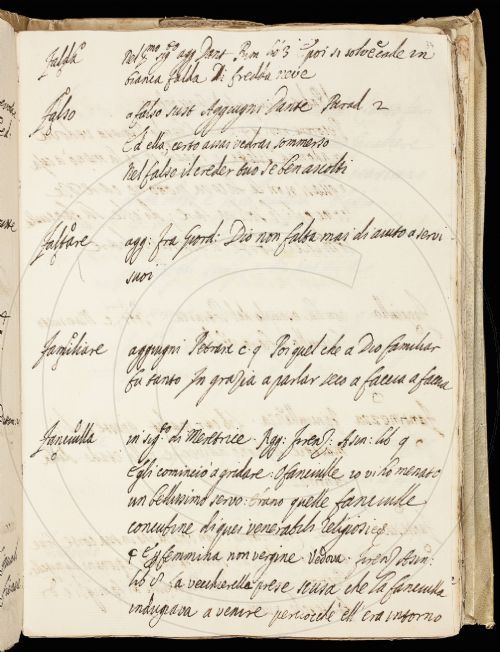 Falda Nel 3.mo sig.to agg Dant Rim poi si solve e cade in
bianca falda di fredda neve
Falso a falso sust Aggiugni Dante Parad 2
Ed ella, certo assai vedrai sommerso
Nel falso il creder tuo se ben ascolti
Faltare agg: fra Giord: Dio non falta mai di aiuto a servi
suoi
Familiare aggiugni Petrarc c. 9 Poi quel che a Dio familiar
fu tanto In grazia a parlar seco a faccia a faccia
Fanciulla in sig.to di Meretrice. Agg: Firenz: Asin: lib 9
Egli cominciò a gridare. O fanciulle io vi hò menato
un bellissimo servo: Erano quelle fanciulle
concubine di quei venerabili religiosi
femmina non vergine. Vedova. Firenz Asin:
lib 8: a vecchierella prese scusa che la fanciulla
indugiava a venire perciocchè ell'era intorno